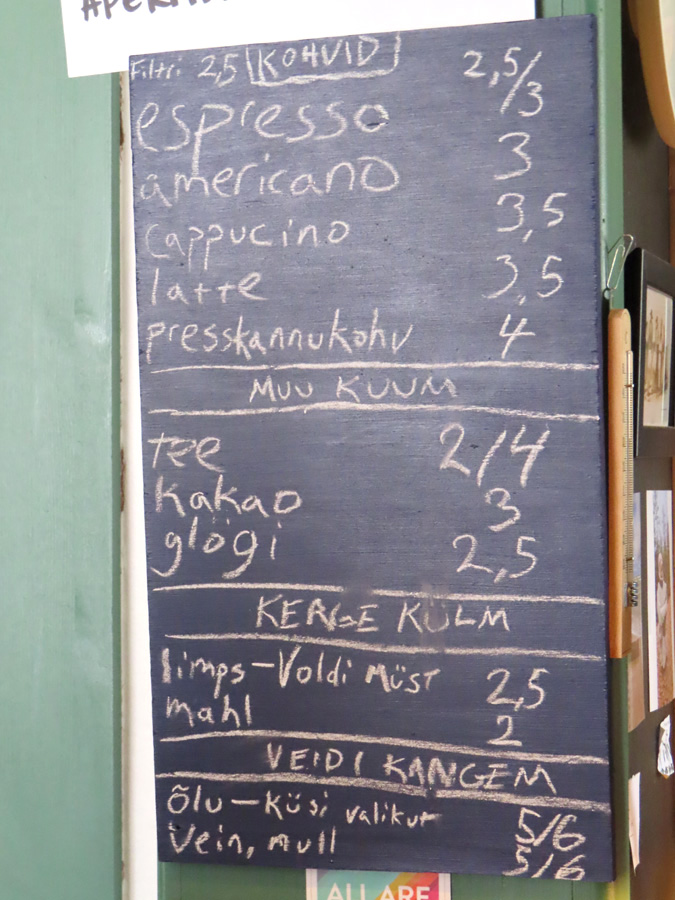 Filtri 2,5 KOHVID 2,5/3
espresso
americano 3
cappucino 3,5
latte 3,5
presskannukohv 4
MUU KUUM
tee 2/4
kakao 3
glögi 2,5
KERGE KÜLM
limps - Voldi MÜST 2,5
mahl 2
VEIDI KANGEM
Õlu - küsi valikut 5/6
Vein, mull 5/6
ALL ARE